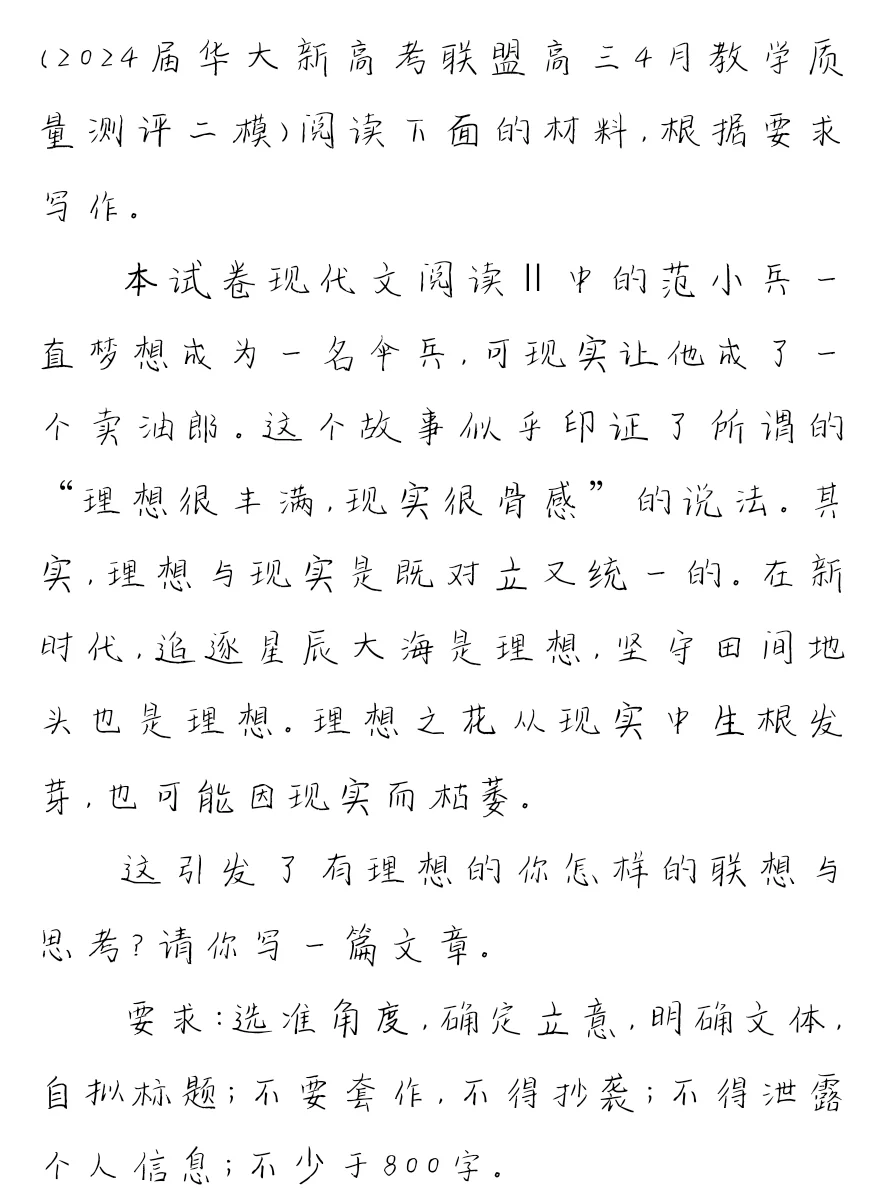 (2024届华大新高考联盟高三4月教学质
量测评二模)阅读下面的材料,根据要求
写作。
本试卷现代文阅读Ⅱ中的范小兵一
直梦想成为一名伞兵,可现实让他成了一
个卖油郎。这个故事似乎印证了所谓的
“理想很丰满,现实很骨感”的说法。其
实,理想与现实是既对立又统一的。在新
时代,追逐星辰大海是理想,坚守田间地
头也是理想。理想之花从现实中生根发
芽,也可能因现实而枯萎。
这引发了有理想的你怎样的联想与
思考?请你写一篇文章。
要求:选准角度,确定立意,明确文体,
自拟标题;不要套作,不得抄袭;不得泄露
个人信息;不少于800字。